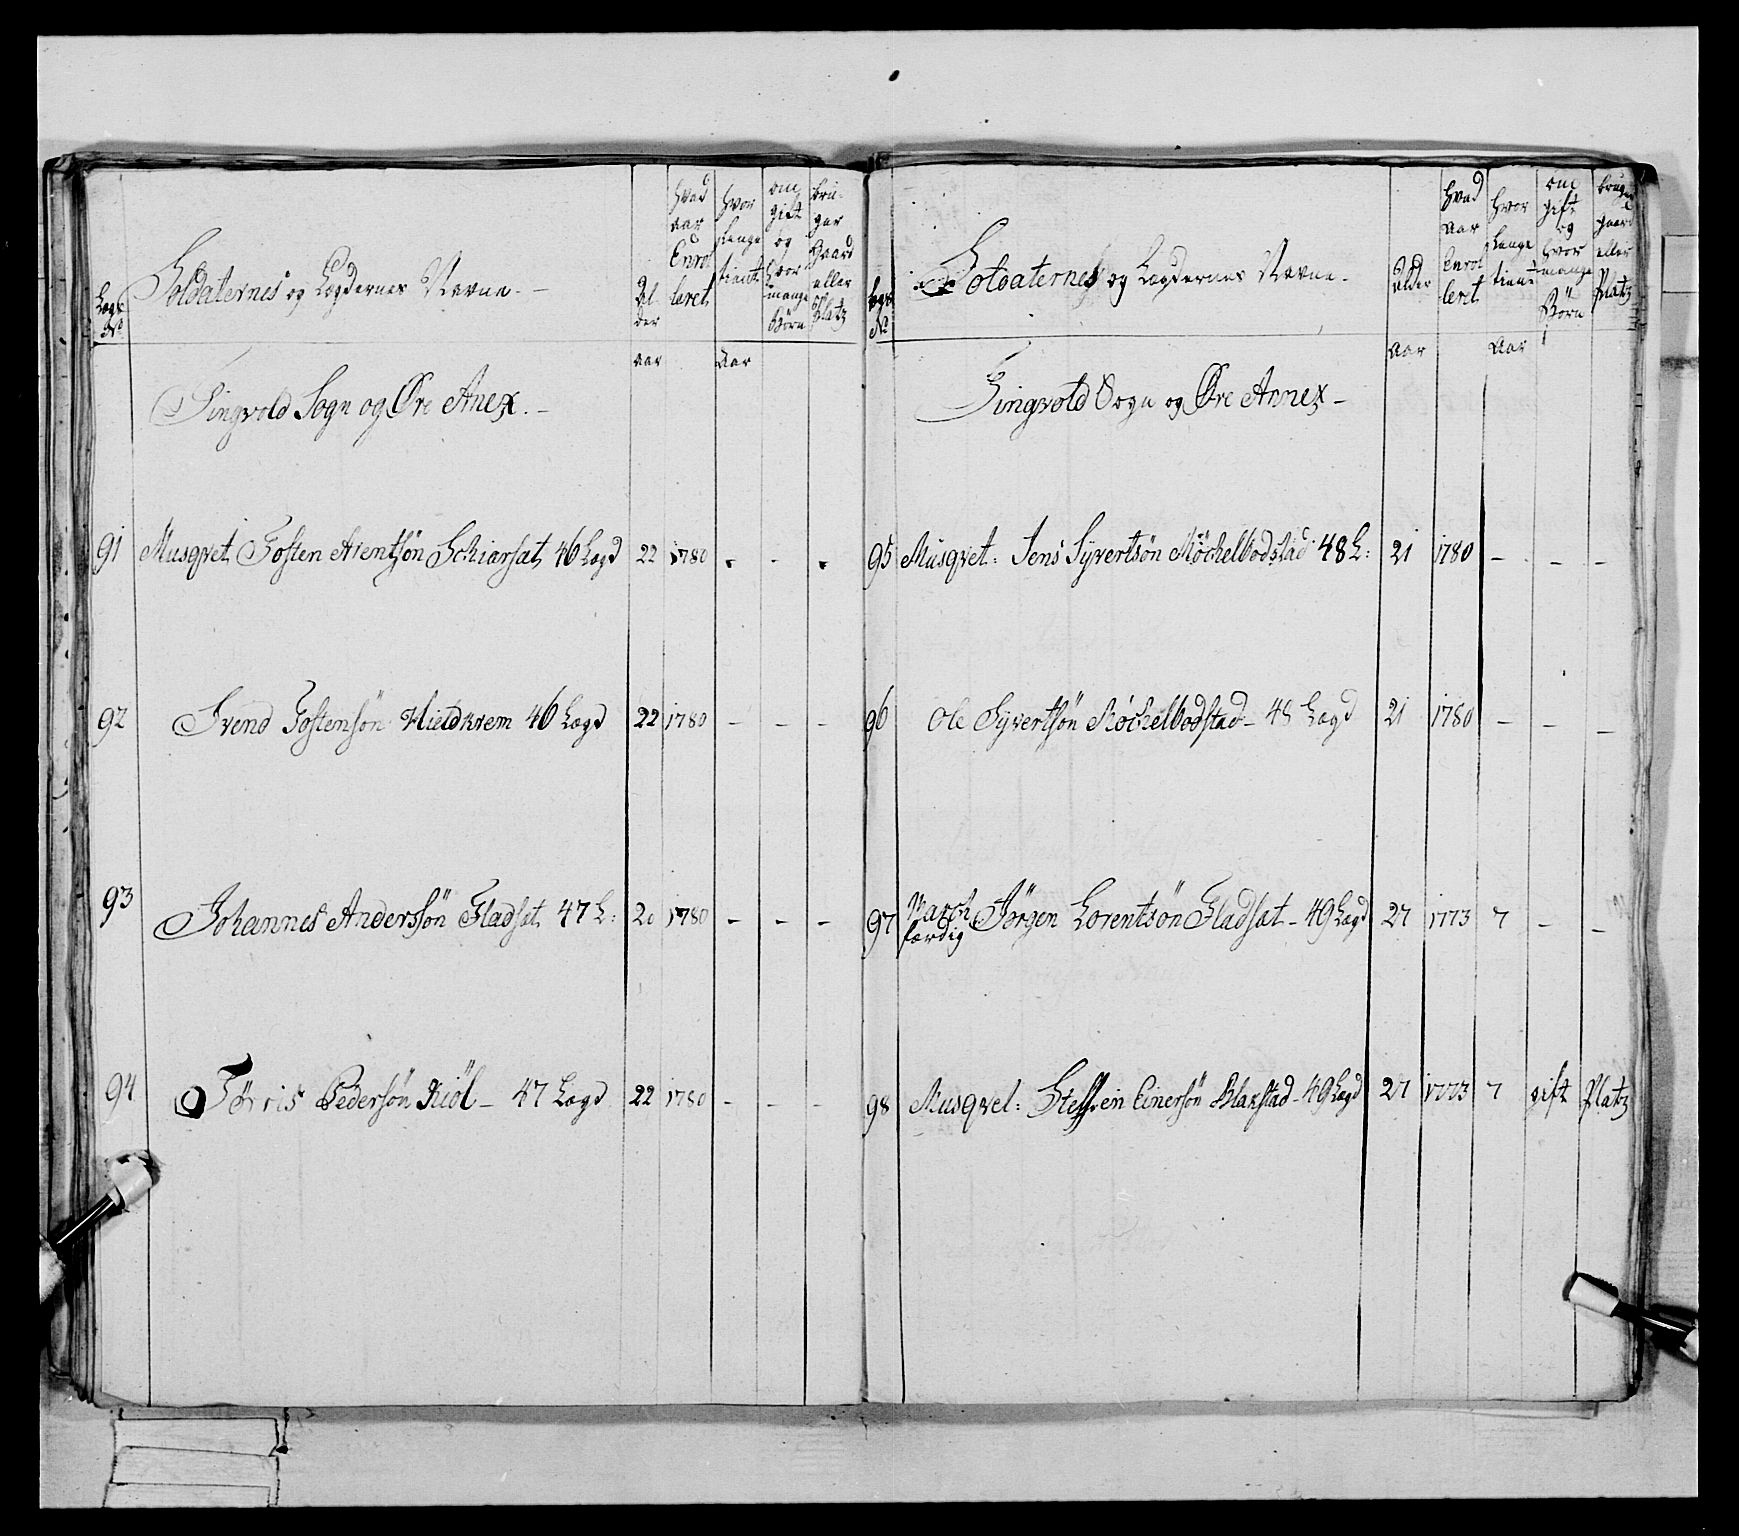 Lægs No
Soldaternes og Lægdernes Navne. –
Alder
hvad aar Enrolleret
hvor længe tient
om gift og hvor mange Børn
bruger Gaard eller Platz
aar
Aar
Tingvold Sogn og Øre Anex. –
91 Musqvet. Tosten Arentsøn Schiarsæt 46 Lægd 22 1780 - - -
92 Svend Tostensøn Hieldkrem 46 Lægd 22 1780 – – –
93 Johannes Anderssøn Fladsæt 47 L: 20 1780 – – –
94 Tørris Pedersøn Kiöl – 47 Lægd 22 1780 – – –
Lægs No
Soldaternes og Lægdernes Navne –
Alder
hvad Aar Enrolleret
hvor længe tient
om gift og hvor mange Børn
bruger gaard eller Platz
Aar
Aar
Tingvold Sogn og Øre Annex –
95 Musqvet: Jens Syvertsön Möchelbodstad 48 L: 21 1780 – – –
96 Ole Syvertsön Möchelbodstad – 48 Lægd 21 1780 – – –
97 March færdig Jörgen Lorentsön Fladsæt – 49 Lægd 27 1773 7 – –
98 Musqvet: Steffen Einersön Blaxstad – 49 Lægd 27 1773 7 gift Platz